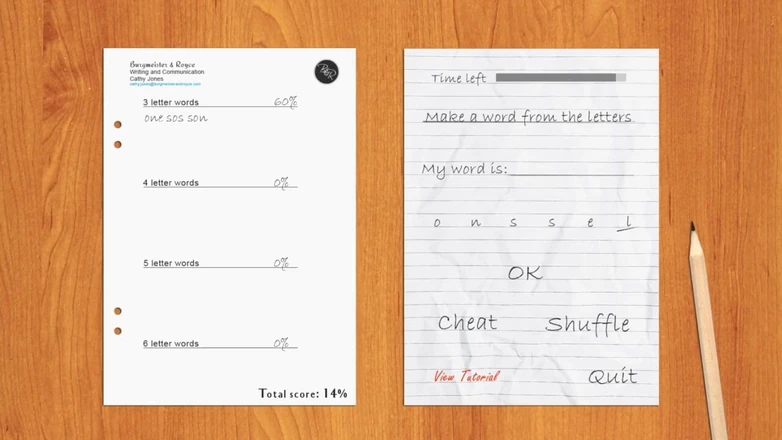 Burgmeister & Royce
Writing and Communication
Cathy Jones
cathy.jones@burgmeisterandroyce.com
3 letter words 60%
one sos son
4 letter words 0%
5 letter words 0%
6 letter words 0%
Total score: 14%
Time left
Make a word from the letters
My word is:
o n s s e l
OK
Cheat Shuffle
View Tutorial Quit